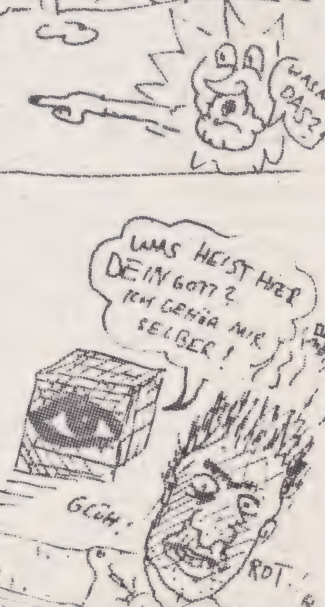 WAS HEIST HIER
DEIN GOTT?
ICH GEHÖR MIR
SELBER!
GLÜH!
ROT!